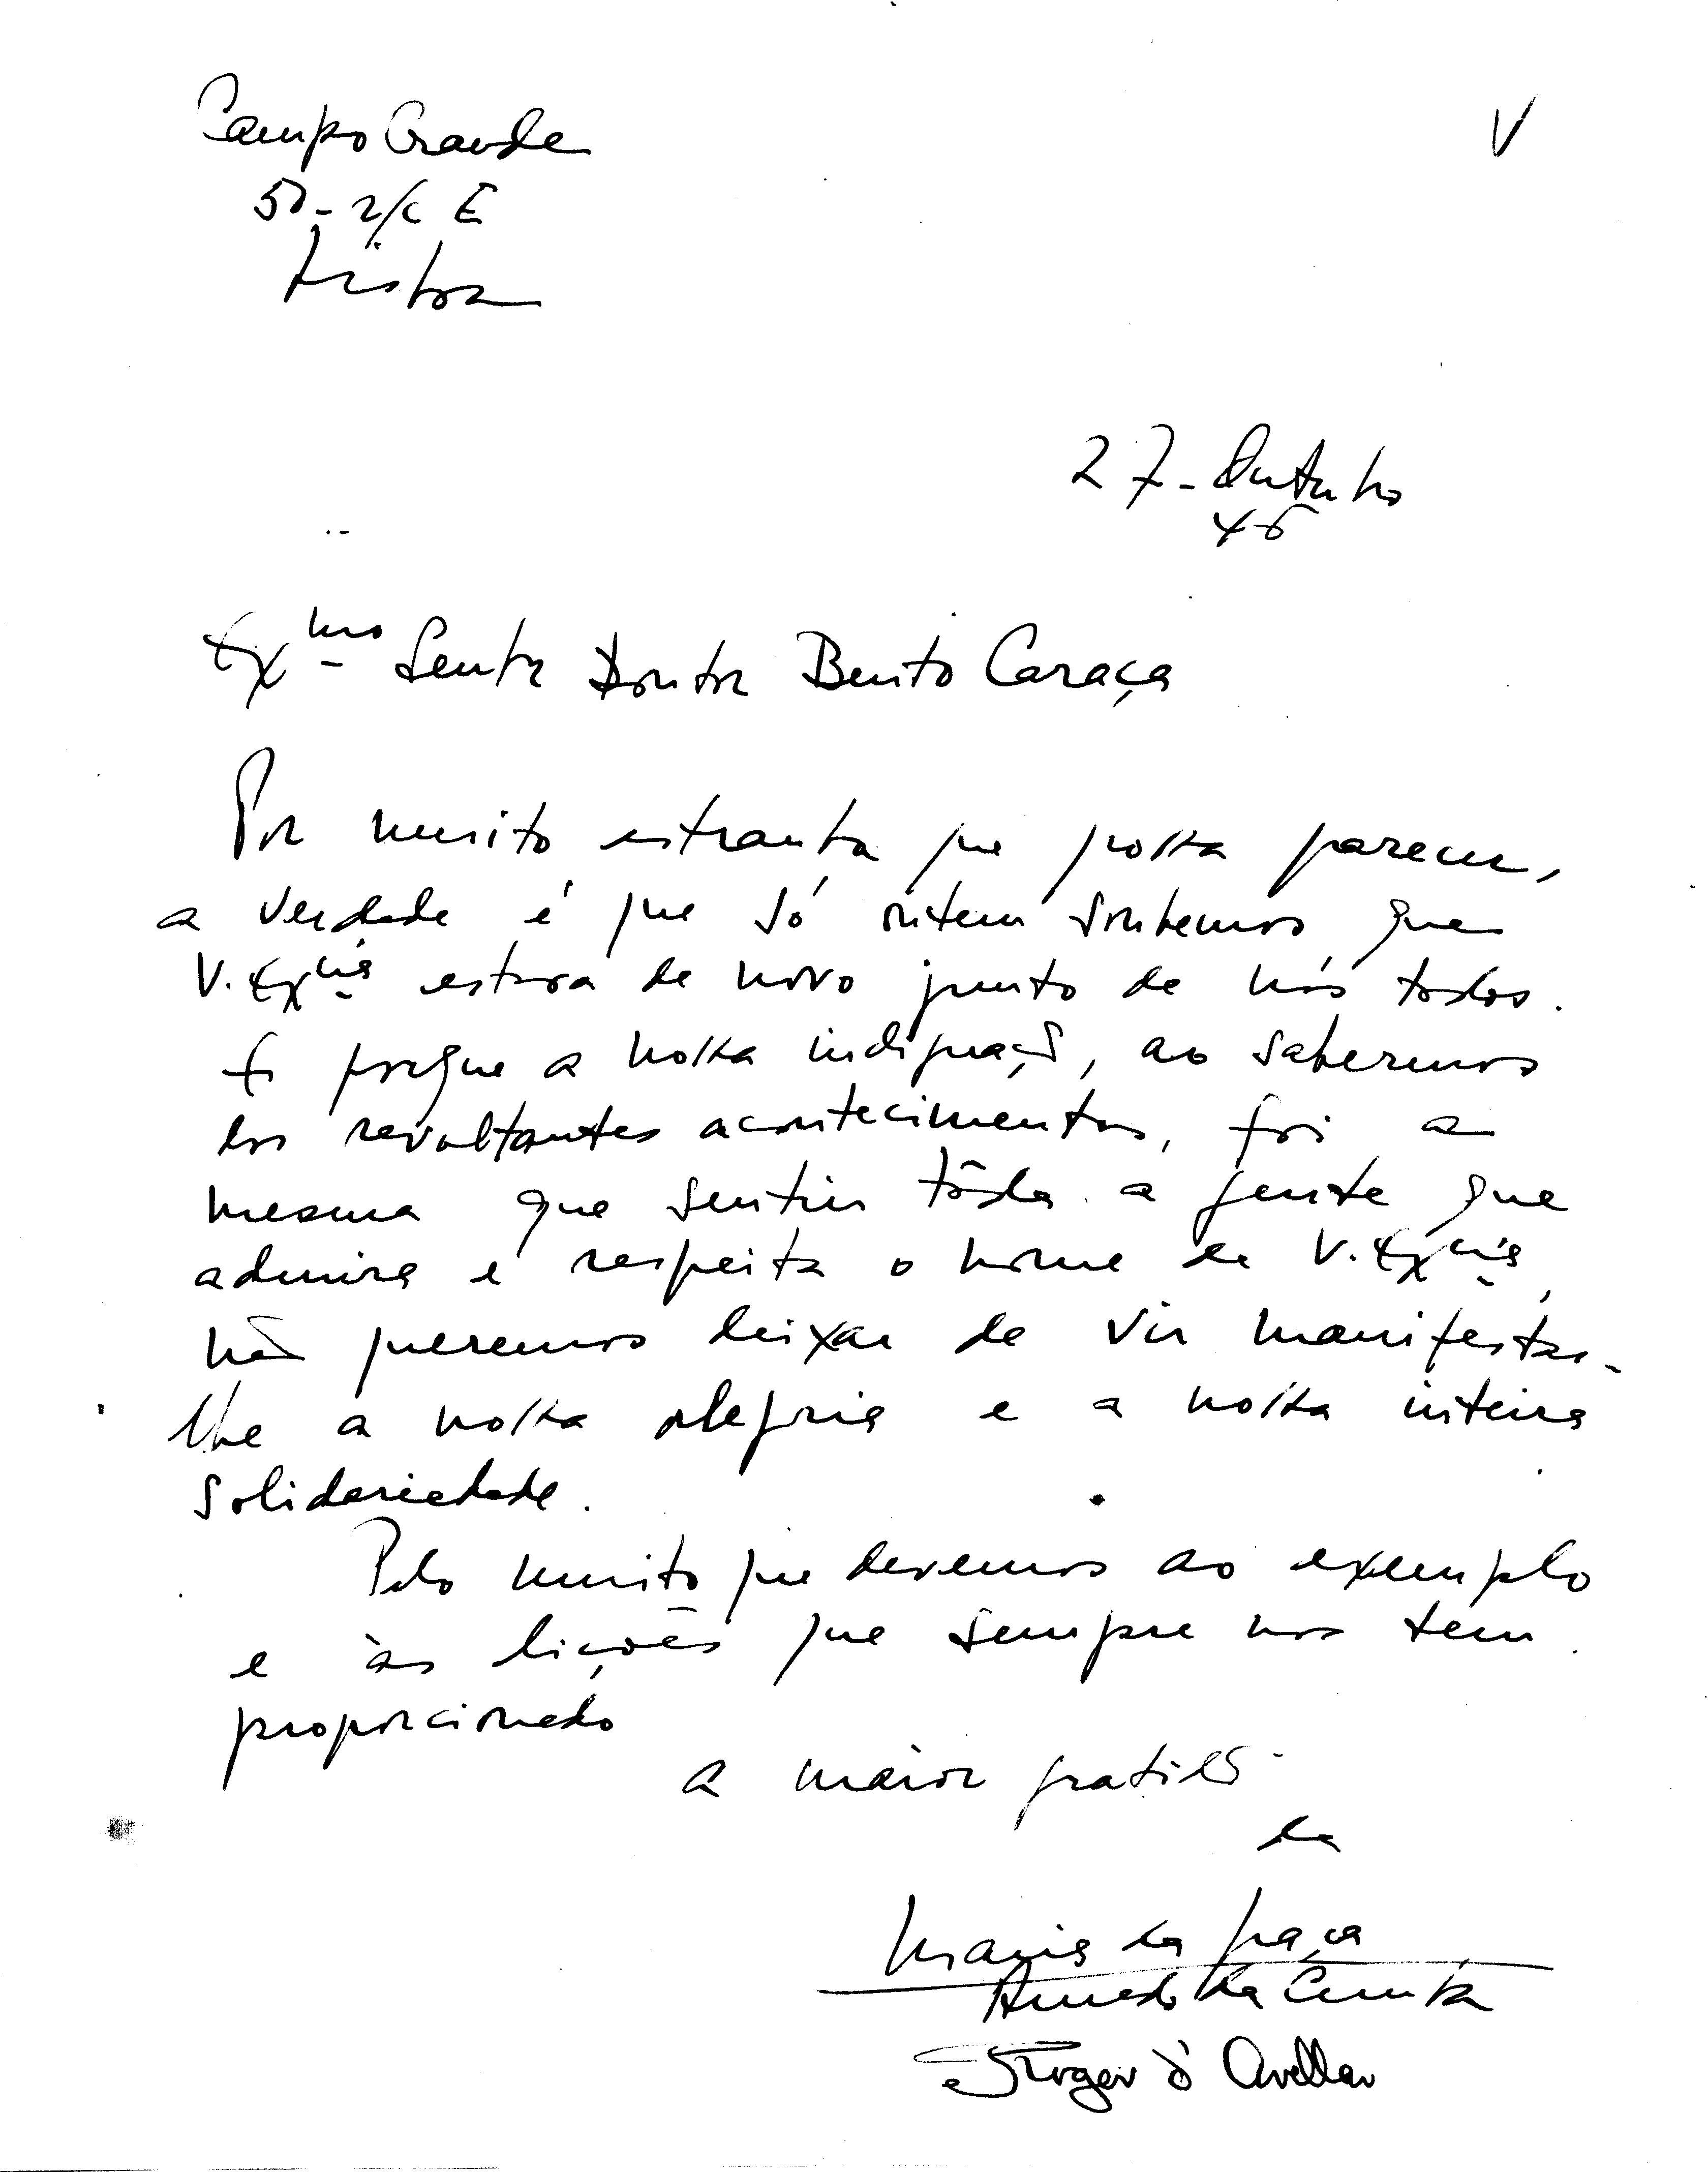 Campo Grande
V
50- r/c E
Lisboa
27- Outubro
46
Exmo Senhor Doutor Bento Caraça
Por muito estranho que possa parecer,
a verdade é que só ontem soubemos que
V. Excia estava de novo junto de nós todos.
E porque a nossa indignação, ao sabermos
dos revoltantes acontecimentos, foi a
mesma que sentiu tôda a gente que
admira e respeita o nome de V. Excia,
não queremos deixar de vir manifestar-
lhe a nossa alegria e a nossa inteira
solidariedade.
Pelo muito que devemos ao exemplo
e às lições que sempre nos tem
proporcionado
a maior gratidão
da
Maria da Graça
Amado da Cunha
e Jorge d' Avellar